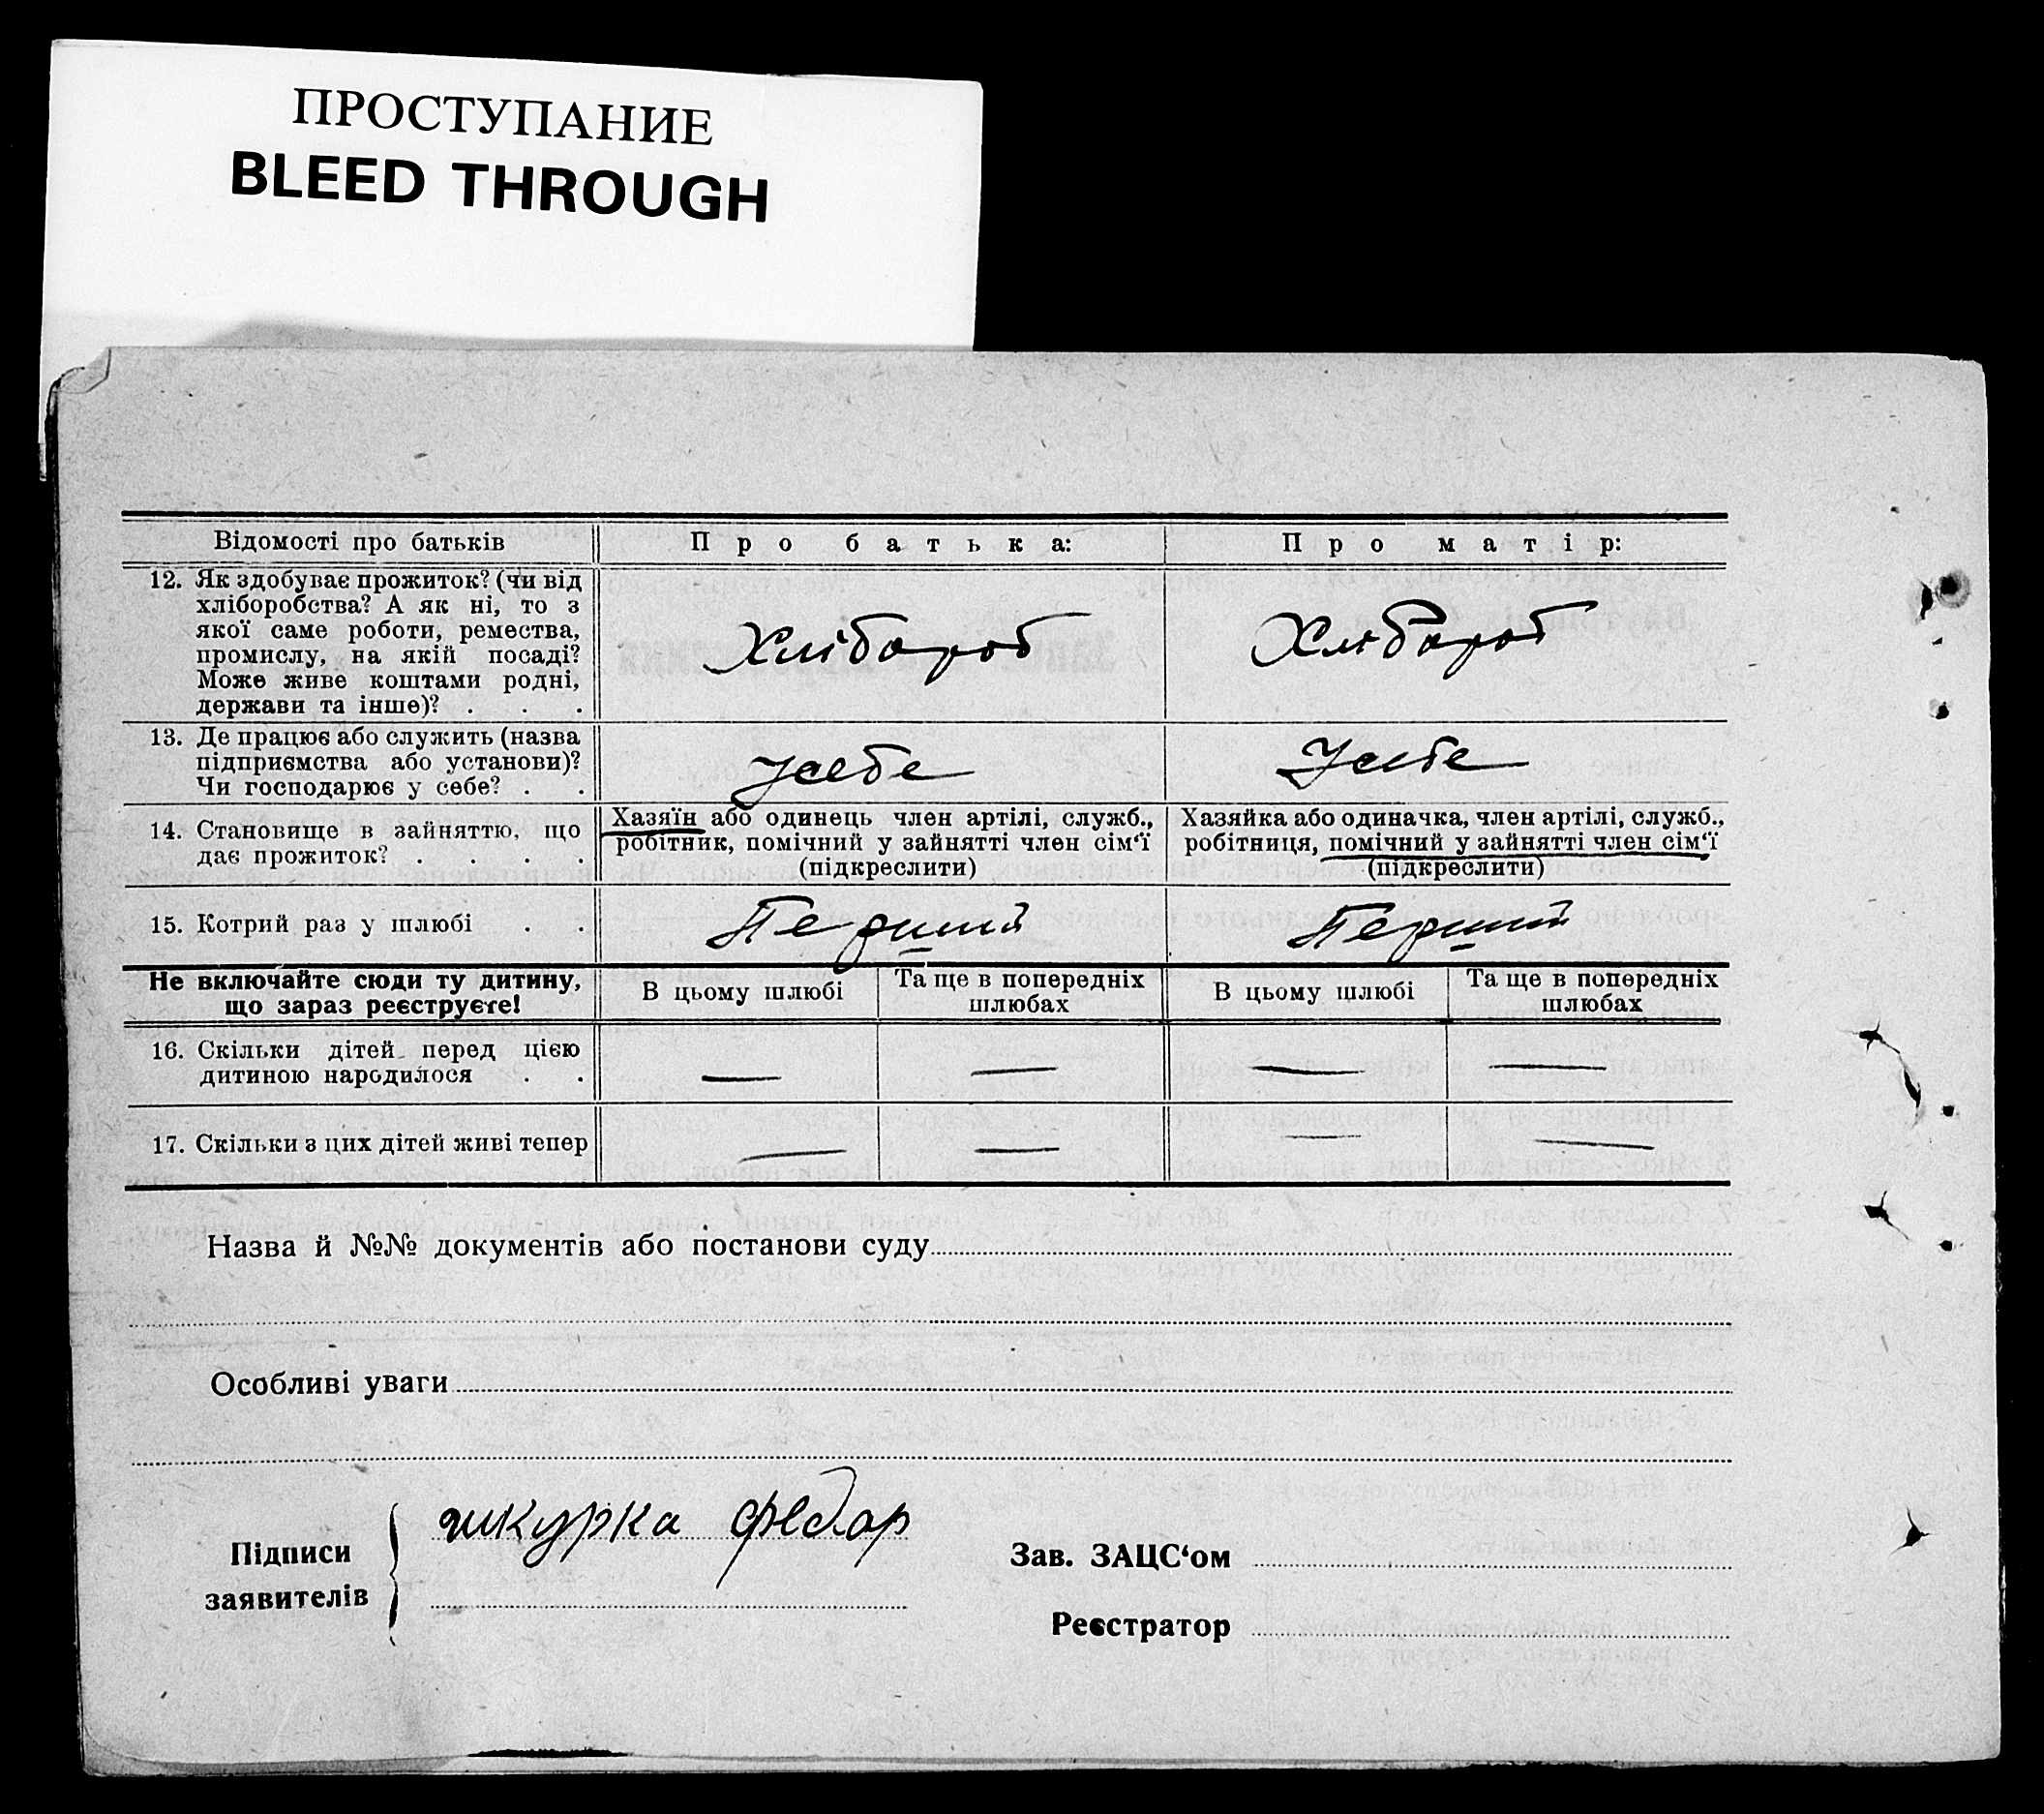 ПРОСТУПАНИЕ
BLEED THROUGH
Відомості про батьків
Про батька:
Про матір:
12. Як здобуває прожиток? (чи від
хліборобства? А як ні, то з
якої саме роботи, ремества,
промислу, на якій посаді?
Може живе коштами родні,
держави та інше)? . . .
Хлібороб
Хлібороб
13. Де працює або служить (назва
підприємства або установи)?
Чи господарює у себе? . .
У себе
У себе
14. Становище в зайняттю, що
дає прожиток? . . . .
Хазяїн або одинець член артілі, служб.,
робітник, помічний у зайнятті член сім‘ї
(підкреслити)
Хазяйка або одиначка, член артілі, служб.,
робітниця, помічний у зайнятті член сім‘ї
(підкреслити)
15. Котрий раз у шлюбі . .
Перший
Перший
Не включайте сюди ту дитину,
що зараз реєструєте!
В цьому шлюбі
Та ще в попередніх
шлюбах
В цьому шлюбі
Та ще в попередніх
шлюбах
16. Скільки дітей перед цією
дитиною народилося . .
— — — —
17. Скільки з цих дітей живі тепер
— — — —
Назва й №№ документів або постанови суду
Особливі уваги
Підписи
заявителів
шкурка федор
Зав. ЗАЦС‘ом
Реєстратор